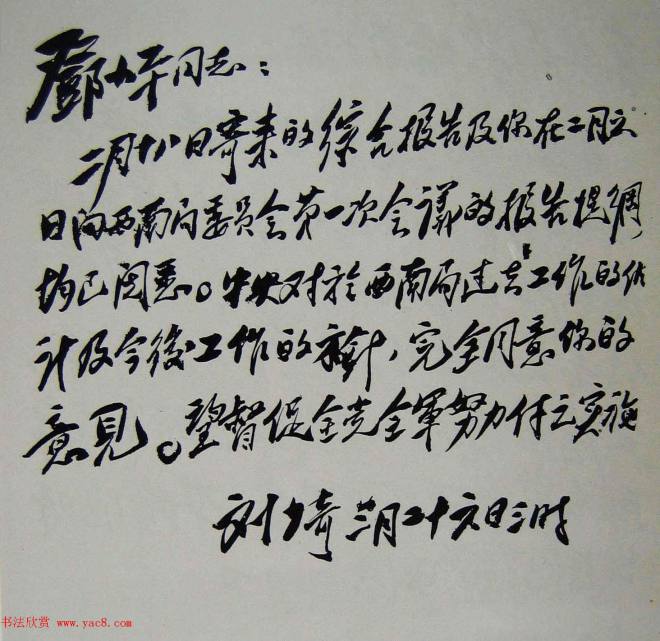 鄧小平同志：
二月十八日寄来的综合报告及你在二月六
日向西南局委員会第一次会議的报告提綱
均已阅悉。中央对於西南局过去工作的估
计及今後工作的方針，完全同意你的
意見。望督促全党全軍努力付之实施
刘少奇 二月二十六日三时
书法欣赏 www.yac8.com